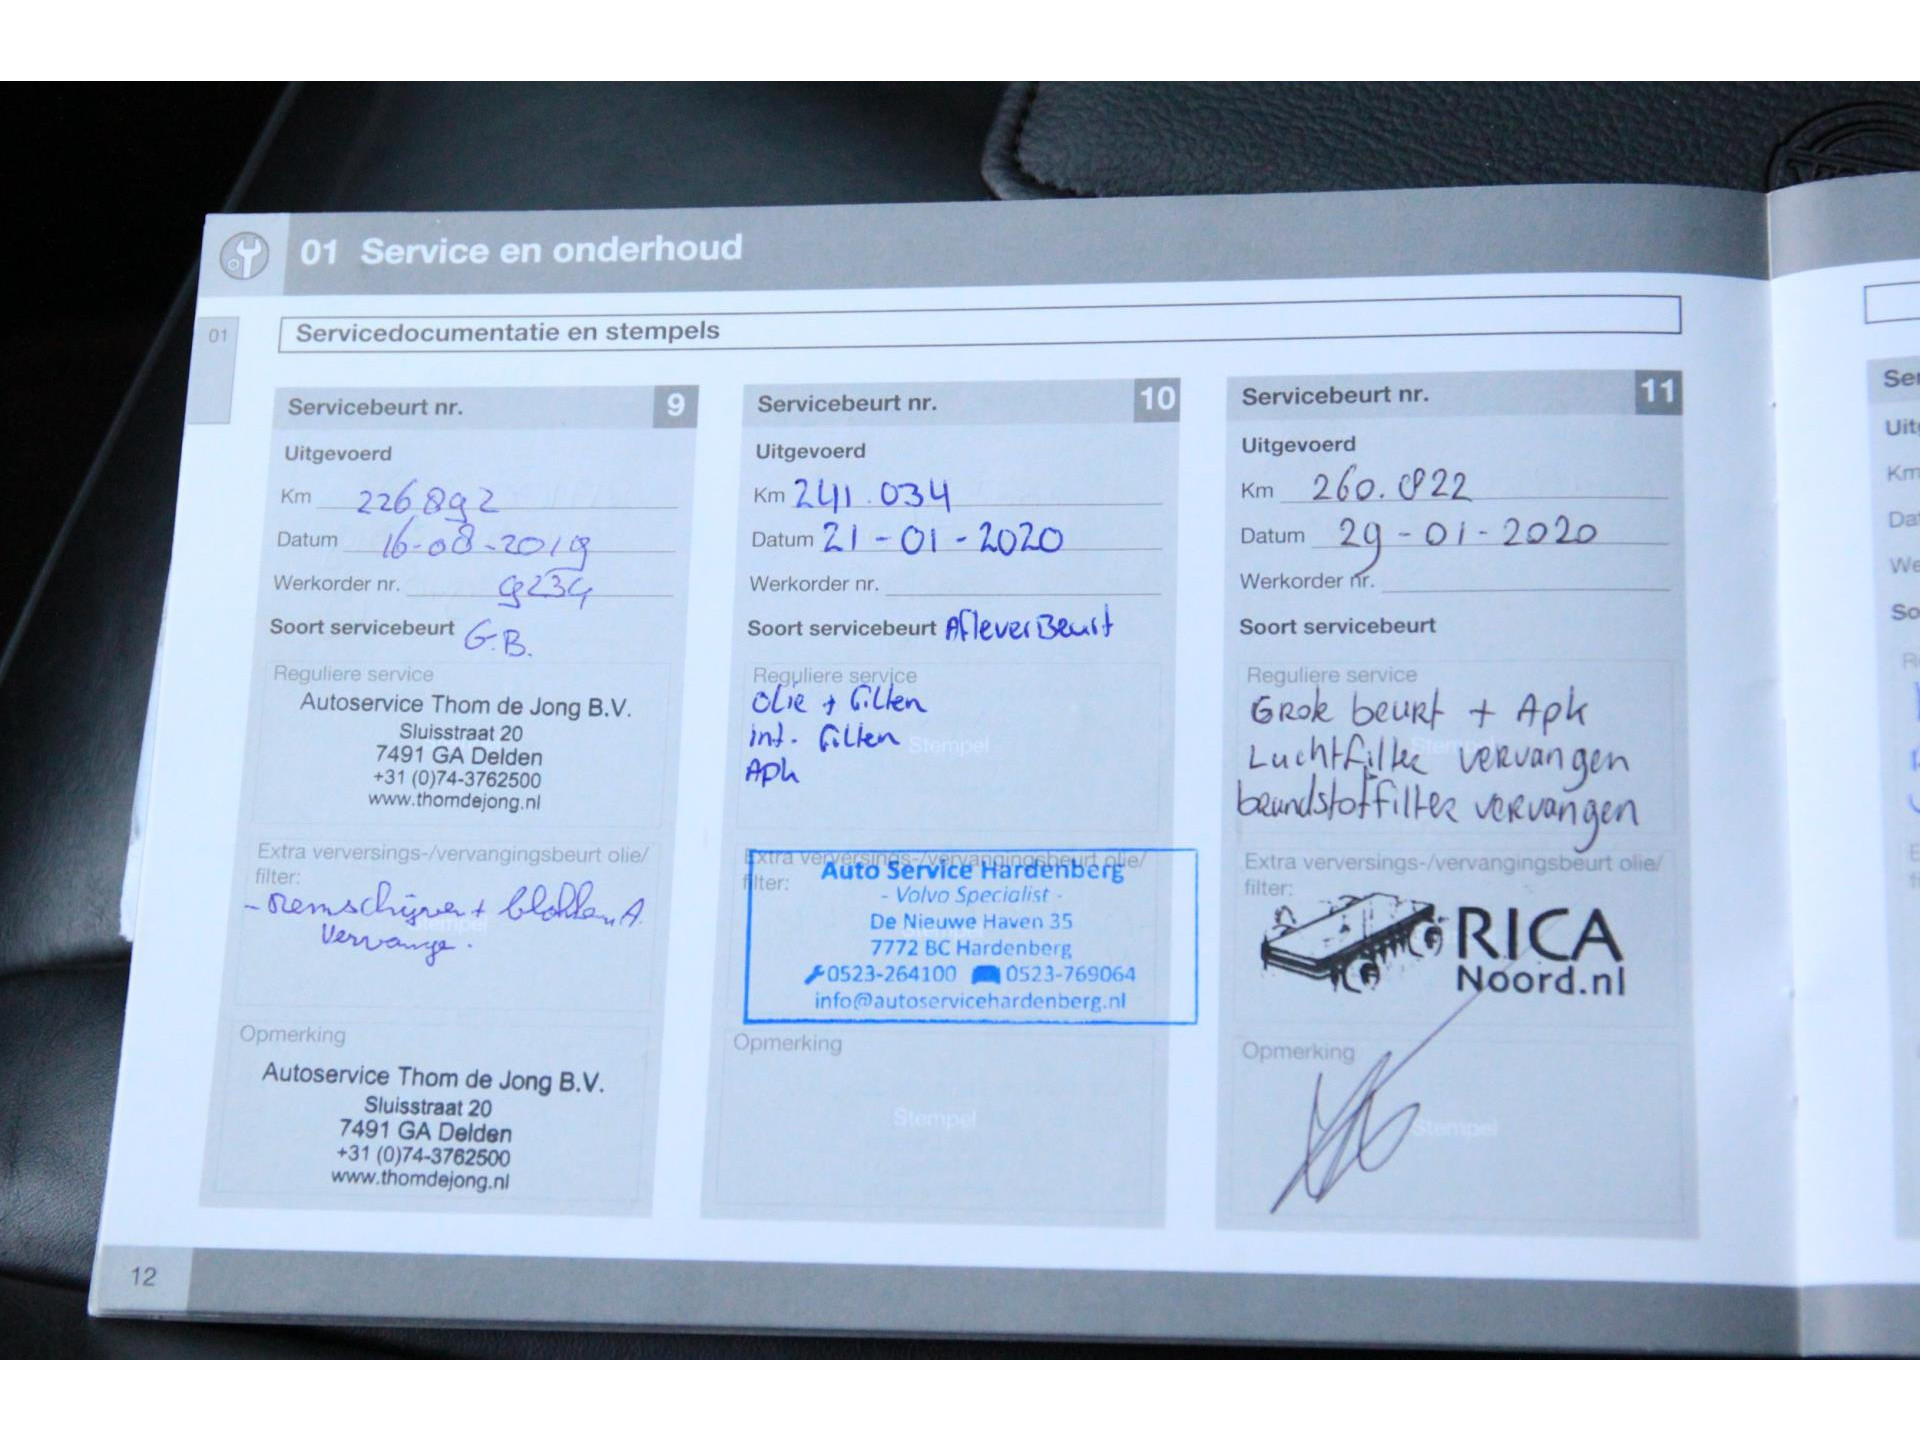 01 Service en onderhoud
01
Servicedocumentatie en stempels
Servicebeurt nr. 9
Uitgevoerd
Km 226892
Datum 16-08-2019
Werkorder nr. 9234
Soort servicebeurt G.B.
Reguliere service
Autoservice Thom de Jong B.V.
Sluisstraat 20
7491 GA Delden
+31 (0)74-3762500
www.thomdejong.nl
Extra verversings-/vervangingsbeurt olie/
filter:
- Remschijven + blokken A.
Vervange.
Stempel
Opmerking
Autoservice Thom de Jong B.V.
Sluisstraat 20
7491 GA Delden
+31 (0)74-3762500
www.thomdejong.nl
Servicebeurt nr. 10
Uitgevoerd
Km 241.034
Datum 21-01-2020
Werkorder nr.
Soort servicebeurt AfleverBeurt
Reguliere service
olie + filter
int. filter
Stempel
Apk
Extra verversings-/vervangingsbeurt olie/
filter:
Auto Service Hardenberg
- Volvo Specialist -
De Nieuwe Haven 35
7772 BC Hardenberg
0523-264100 0523-769064
info@autoservicehardenberg.nl
Opmerking
Stempel
Servicebeurt nr. 11
Uitgevoerd
Km 260.822
Datum 29-01-2020
Werkorder nr.
Soort servicebeurt
Reguliere service
Grote beurt + Apk
Stempel
Luchtfilter vervangen
brandstoffilter vervangen
Extra verversings-/vervangingsbeurt olie/
filter:
RICA
Noord.nl
Opmerking
Stempel
12